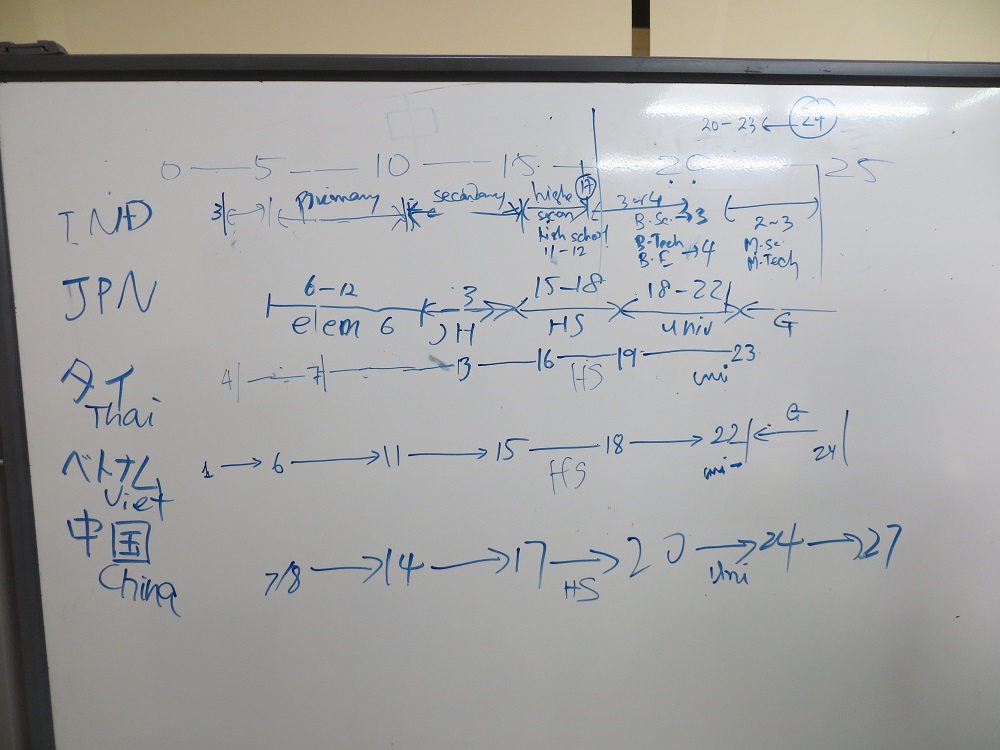 20-23 ← 24
0 — 5 — 10 — 15 — 20 — 25
IND 3 primary secondary higher 17 3~4 2~3
high school B.Sc. → 3 M.Sc.
11-12 B.Tech M.Tech
B.E → 4
JPN 6-12 3 15-18 18-22
elem 6 JH HS univ G
タイ 4 7 13 16 HS 19 23
Thai uni
ベトナム 1 → 6 → 11 → 15 — 18 → 22 ← G 24
Viet HS uni
中国 7/8 → 14 → 17 → 20 → 24 → 27
China HS Uni